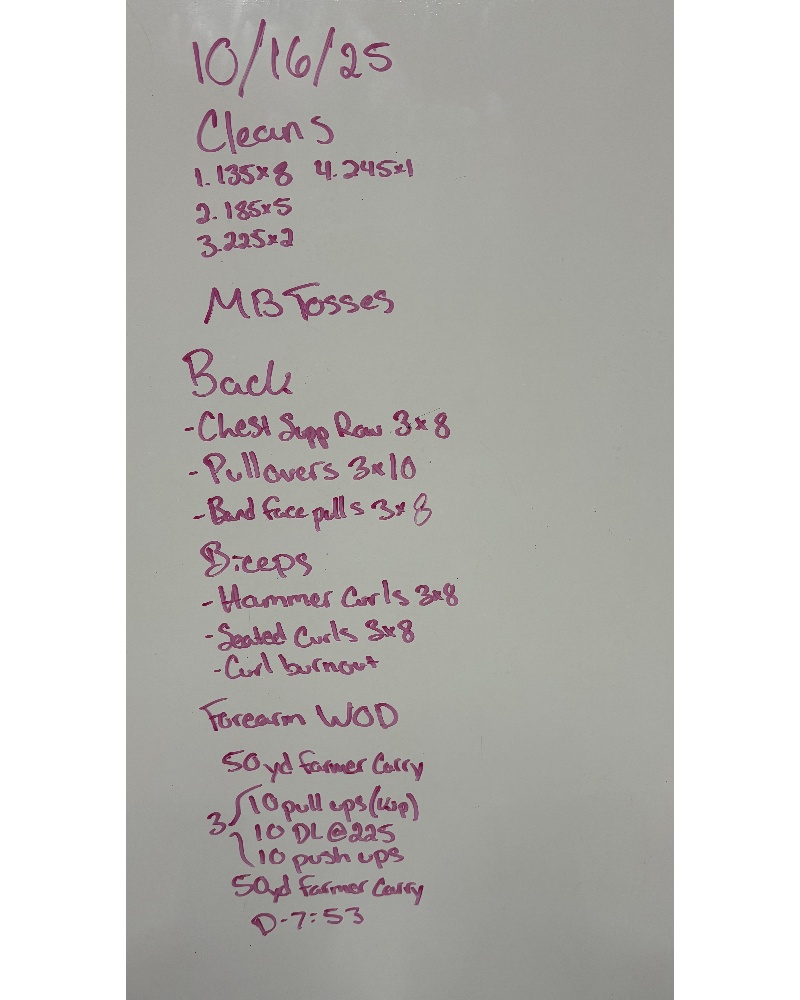 10/16/25
Cleans
1. 135x8 4. 245x1
2. 185x5
3. 225x2
MB Tosses
Back
- Chest Supp Row 3x8
- Pullovers 3x10
- Band face pulls 3x8
Biceps
- Hammer Curls 3x8
- Seated Curls 3x8
- Curl burnout
Forearm WOD
50yd farmer Carry
3 10 pull ups (kip)
10 DL @ 225
10 push ups
50yd farmer Carry
D-7:53